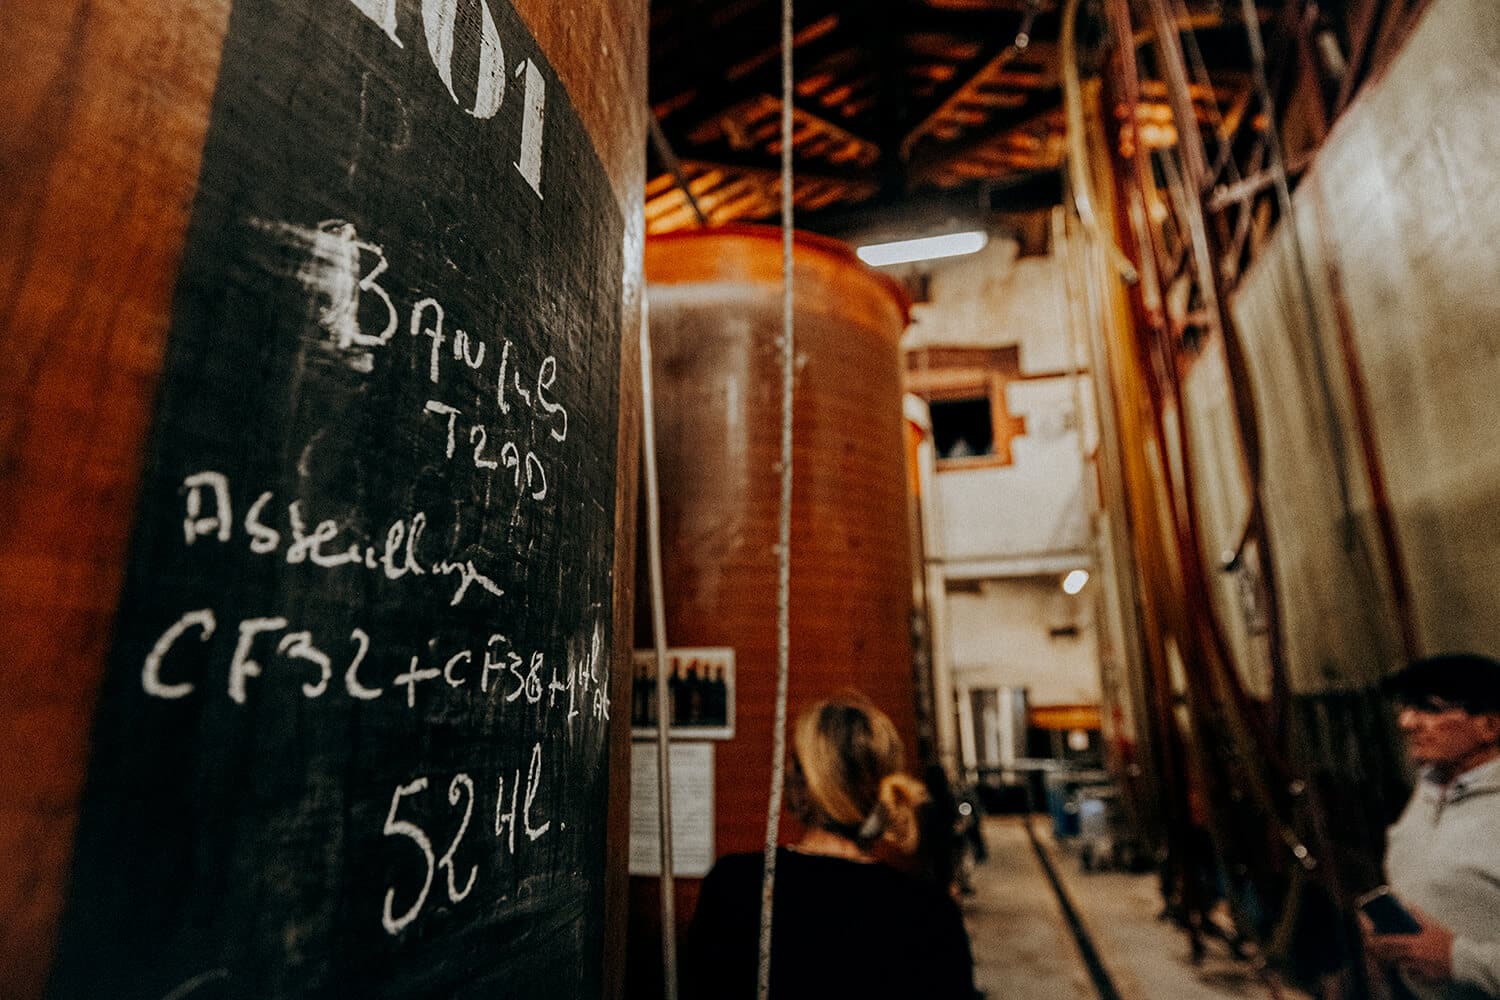 101
BANYULS
TRAD
Assemblage
CF32+CF38+1Hl
52 Hl.